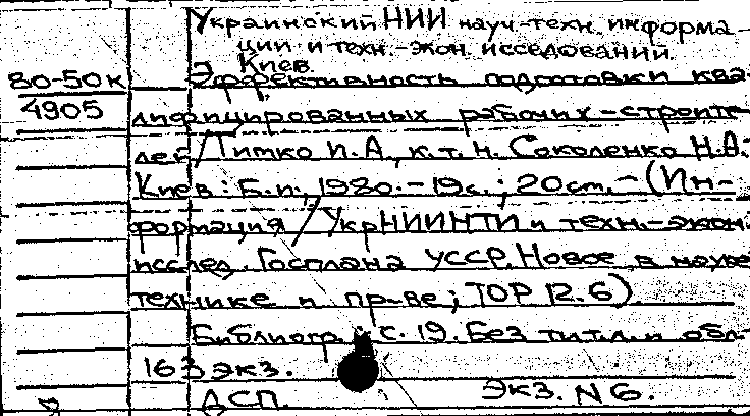 Украинский НИИ науч.-техн. информа-
ции и техн.-экон. исседований.
Киев.
80-50к Эффективность подготовки ква-
4905 лифицированных рабочих-строите-
лей/Титко И.А., к.т.н. Соколенко Н.А.:
Киев: Б.и., 1980.-19с.; 20 cm.-(Ин-
формация/УкрНИИНТИ и техн.-экон.
исслед. Госплана УССР. Новое в науке
технике и пр-ве; ТОР 12.6)
Библиогр.: с. 19. Без тит.л. и обл.
163 экз.
ДСП. Экз. N 6.